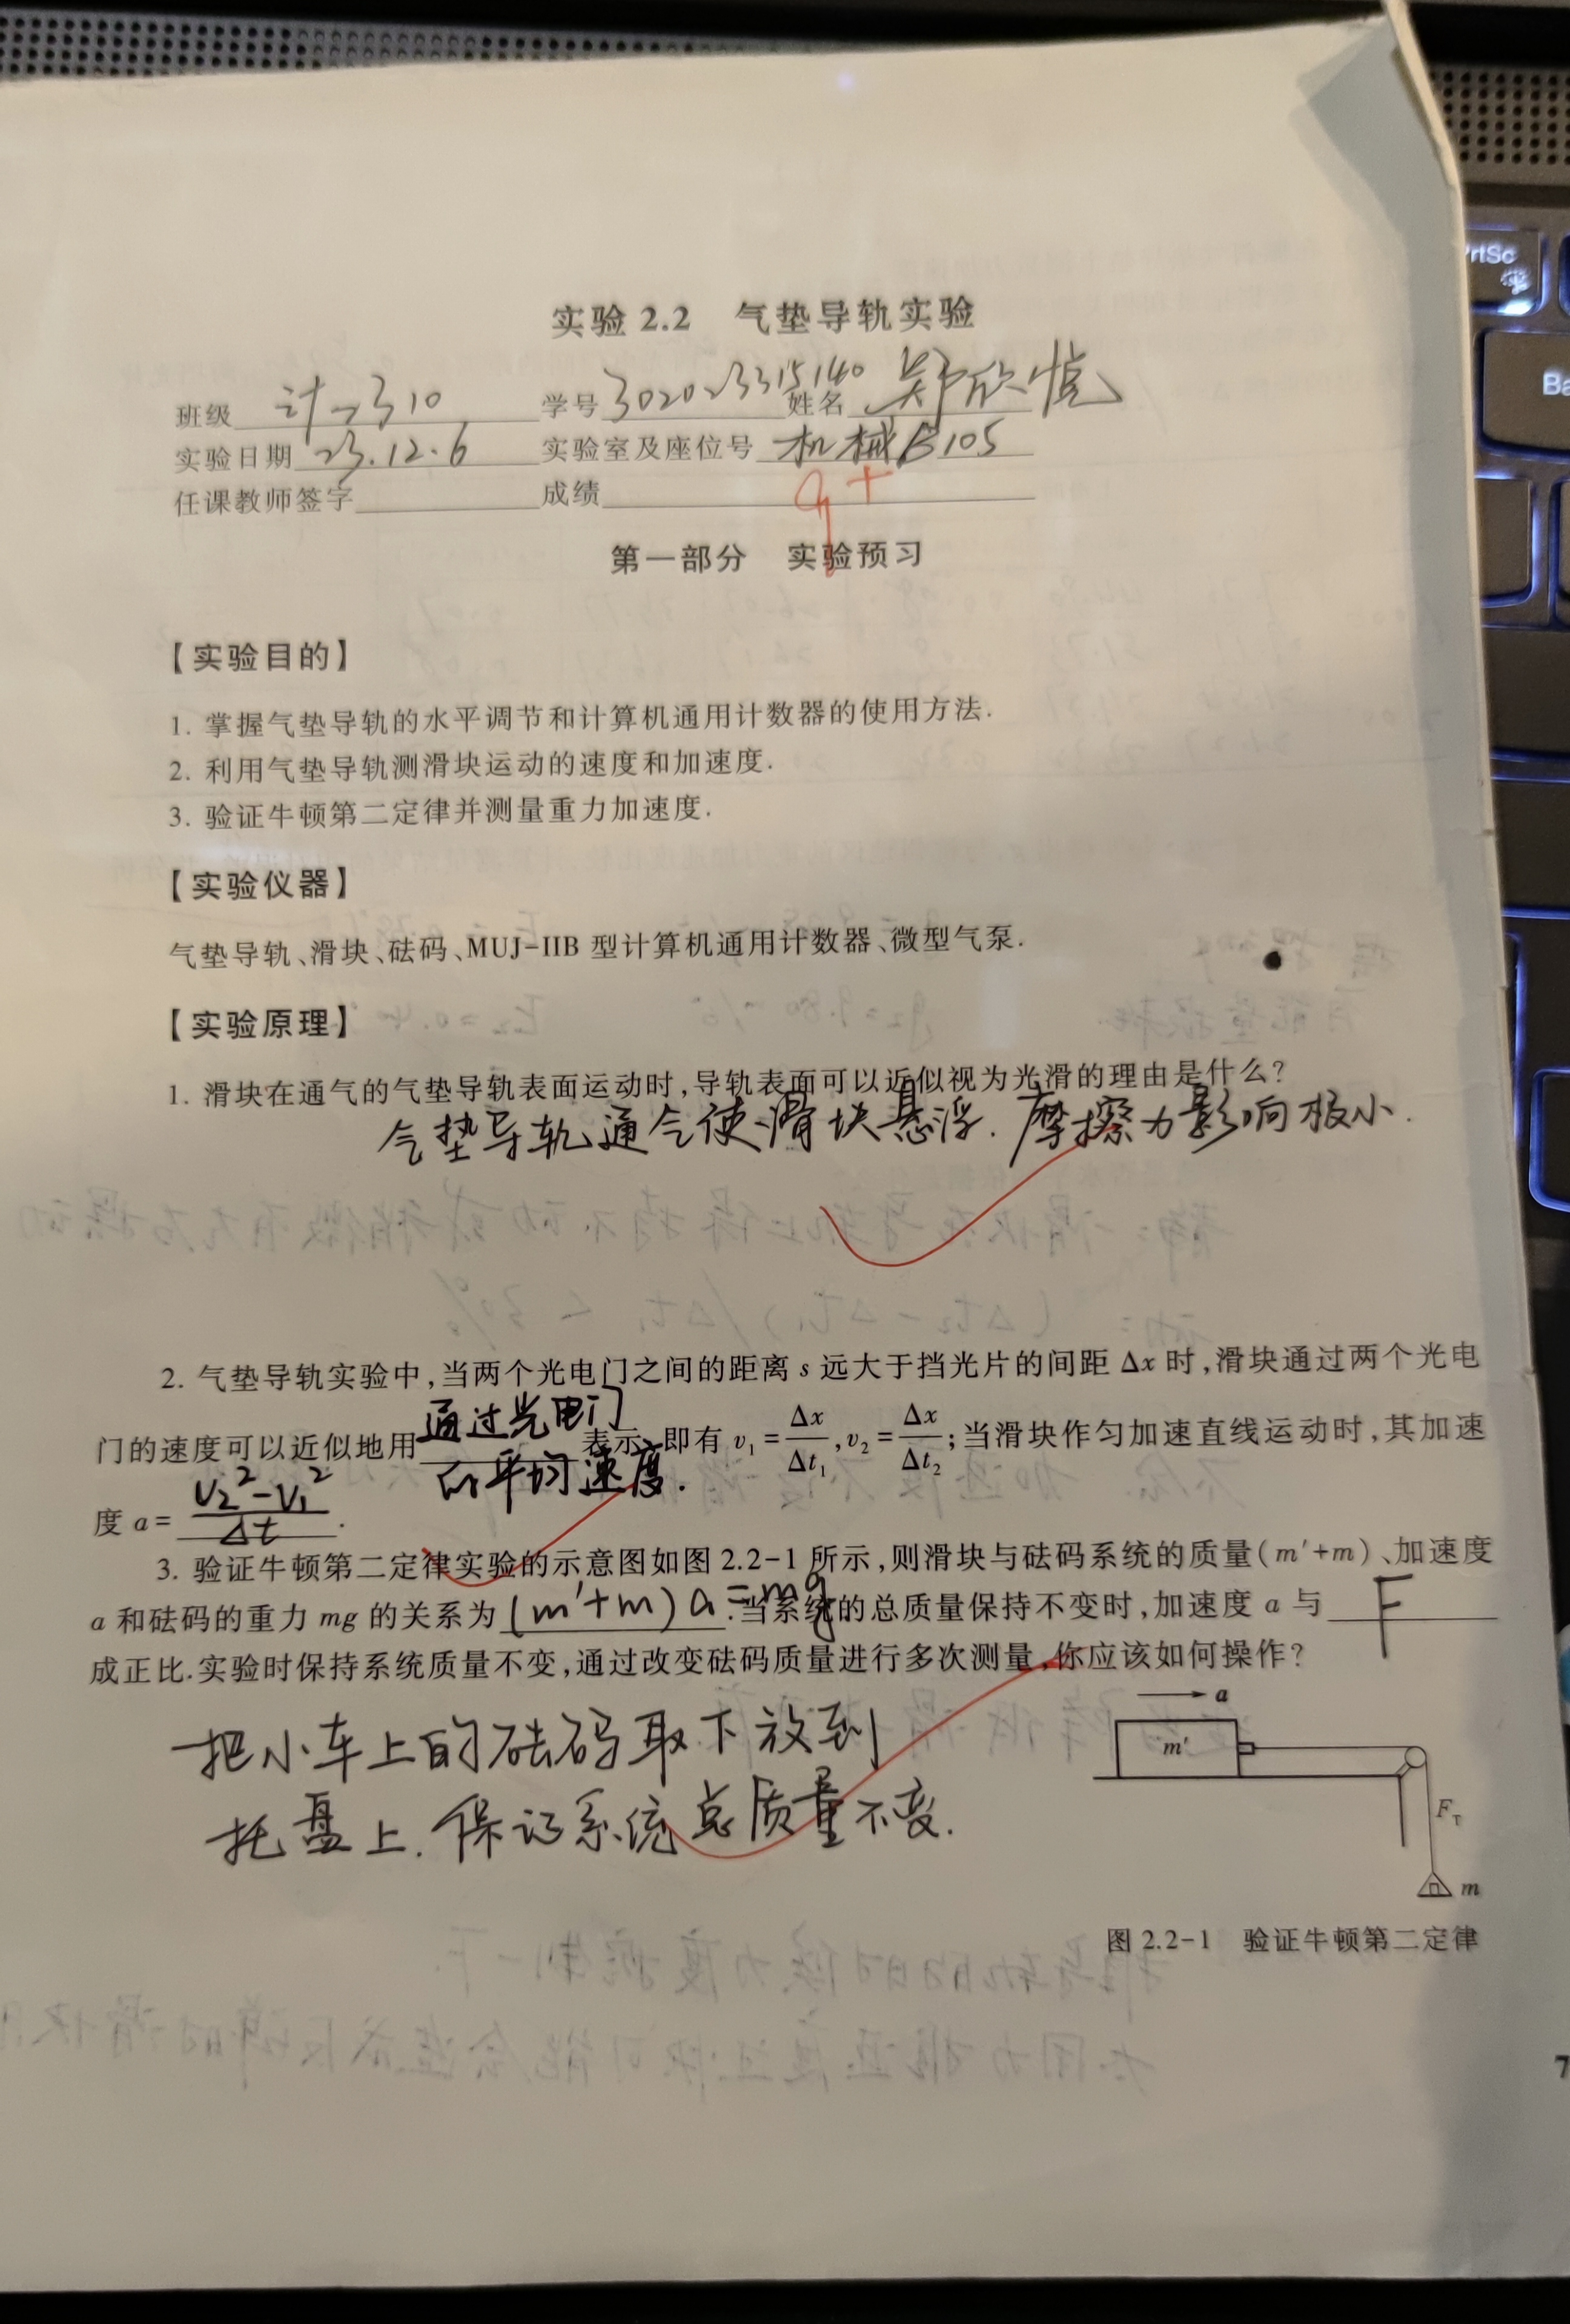 PrtSc
Ba
实验 2.2 气垫导轨实验
班级 计 2310 学号 3020233315140 姓名 郑欣悦
实验日期 23.12.6 实验室及座位号 机械B105
任课教师签字 成绩 9+
第一部分 实验预习
【实验目的】
1. 掌握气垫导轨的水平调节和计算机通用计数器的使用方法.
2. 利用气垫导轨测滑块运动的速度和加速度.
3. 验证牛顿第二定律并测量重力加速度.
【实验仪器】
气垫导轨、滑块、砝码、MUJ-IIB 型计算机通用计数器、微型气泵.
【实验原理】
1. 滑块在通气的气垫导轨表面运动时,导轨表面可以近似视为光滑的理由是什么?
气垫导轨通气使滑块悬浮. 摩擦力影响极小.
2. 气垫导轨实验中,当两个光电门之间的距离 s 远大于挡光片的间距 Δx 时,滑块通过两个光电
门的速度可以近似地用 通过光电门的平均速度. 表示,即有 v₁=Δx/Δt₁,v₂=Δx/Δt₂;当滑块作匀加速直线运动时,其加速
度 a= (v₂²-v₁²)/Δt .
3. 验证牛顿第二定律实验的示意图如图 2.2-1 所示,则滑块与砝码系统的质量(m′+m)、加速度
a 和砝码的重力 mg 的关系为 (m′+m)a=mg .当系统的总质量保持不变时,加速度 a 与 F
成正比.实验时保持系统质量不变,通过改变砝码质量进行多次测量,你应该如何操作?
把小车上的砝码取下放到
托盘上. 保证系统总质量不变.
a
m′
F_T
m
图 2.2-1 验证牛顿第二定律
7